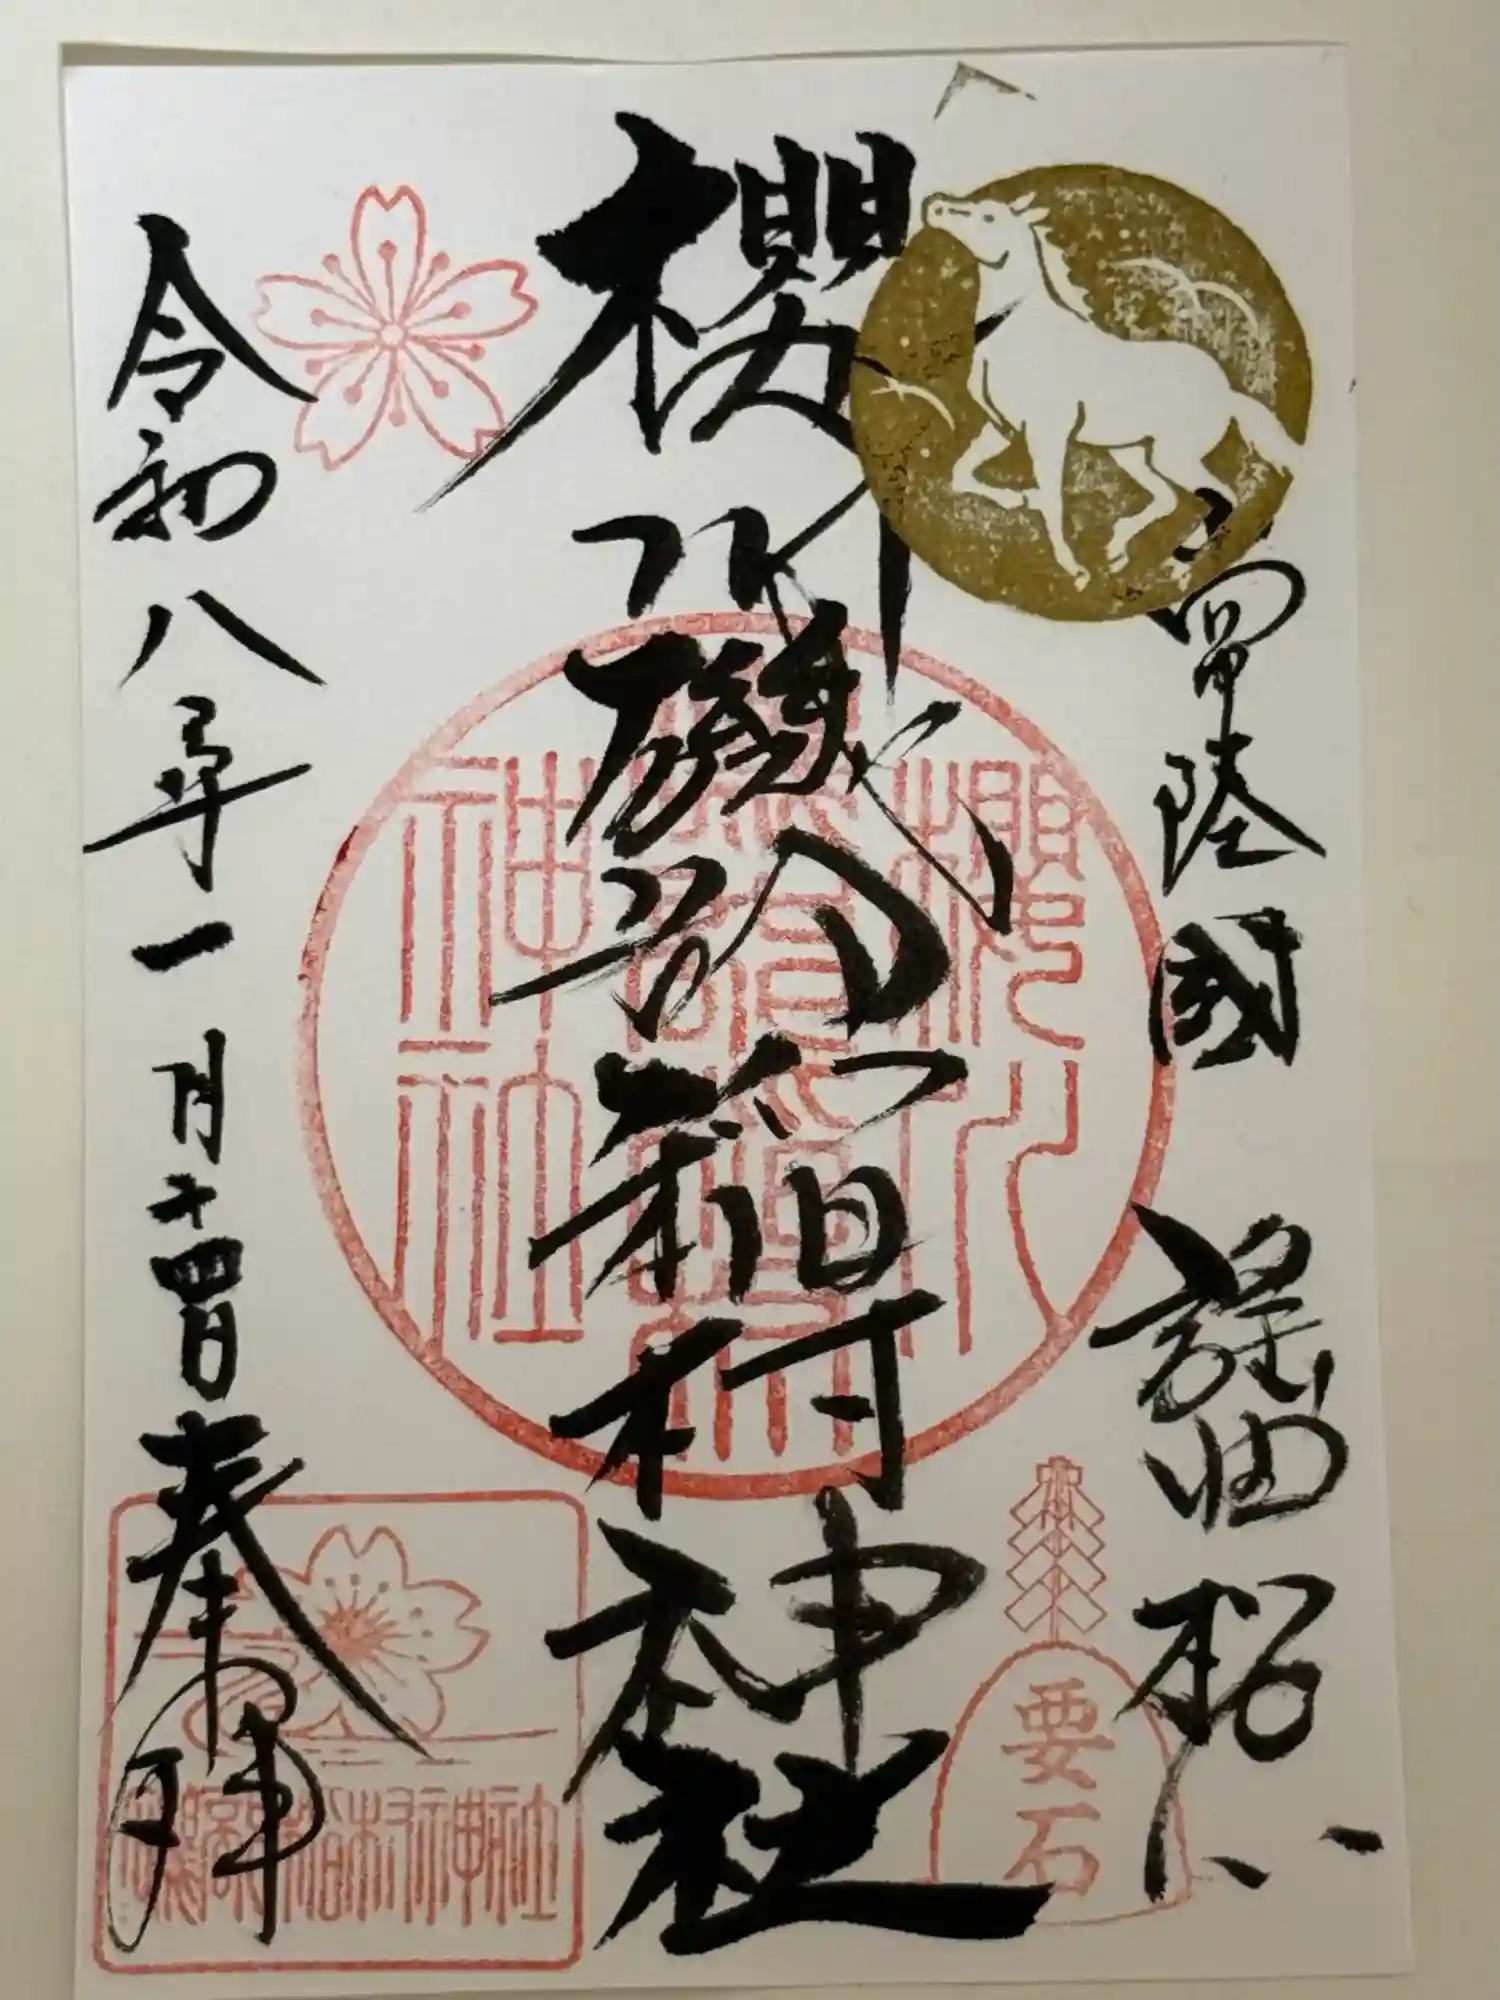 常陸國 謡曲 桜川
櫻川磯部稲村神社
令和八年一月十四日奉拝
櫻川
磯部稲村
神社
要石
磯部稲村神社